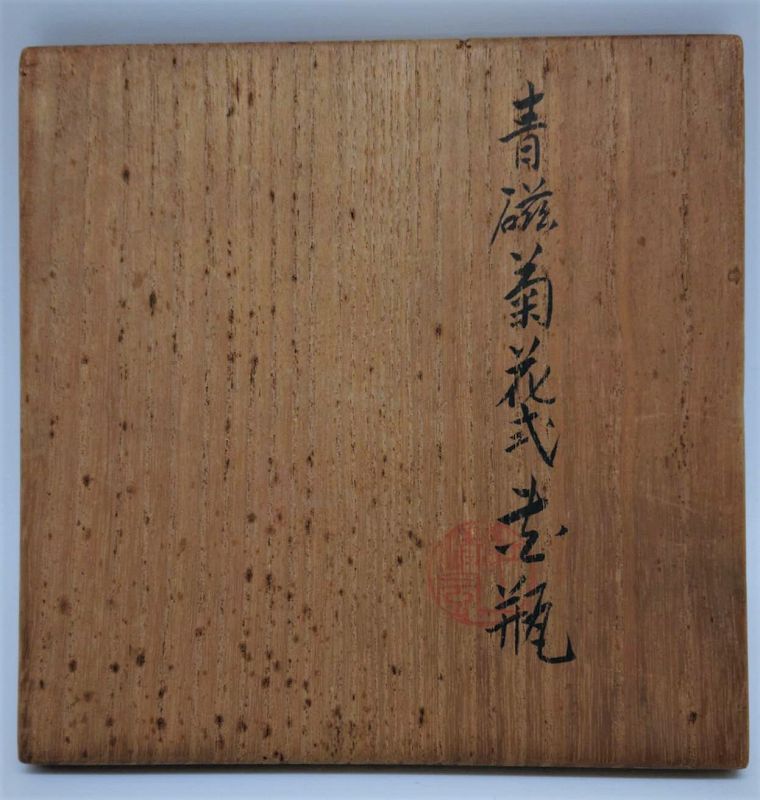 青磁菊花式壺瓶